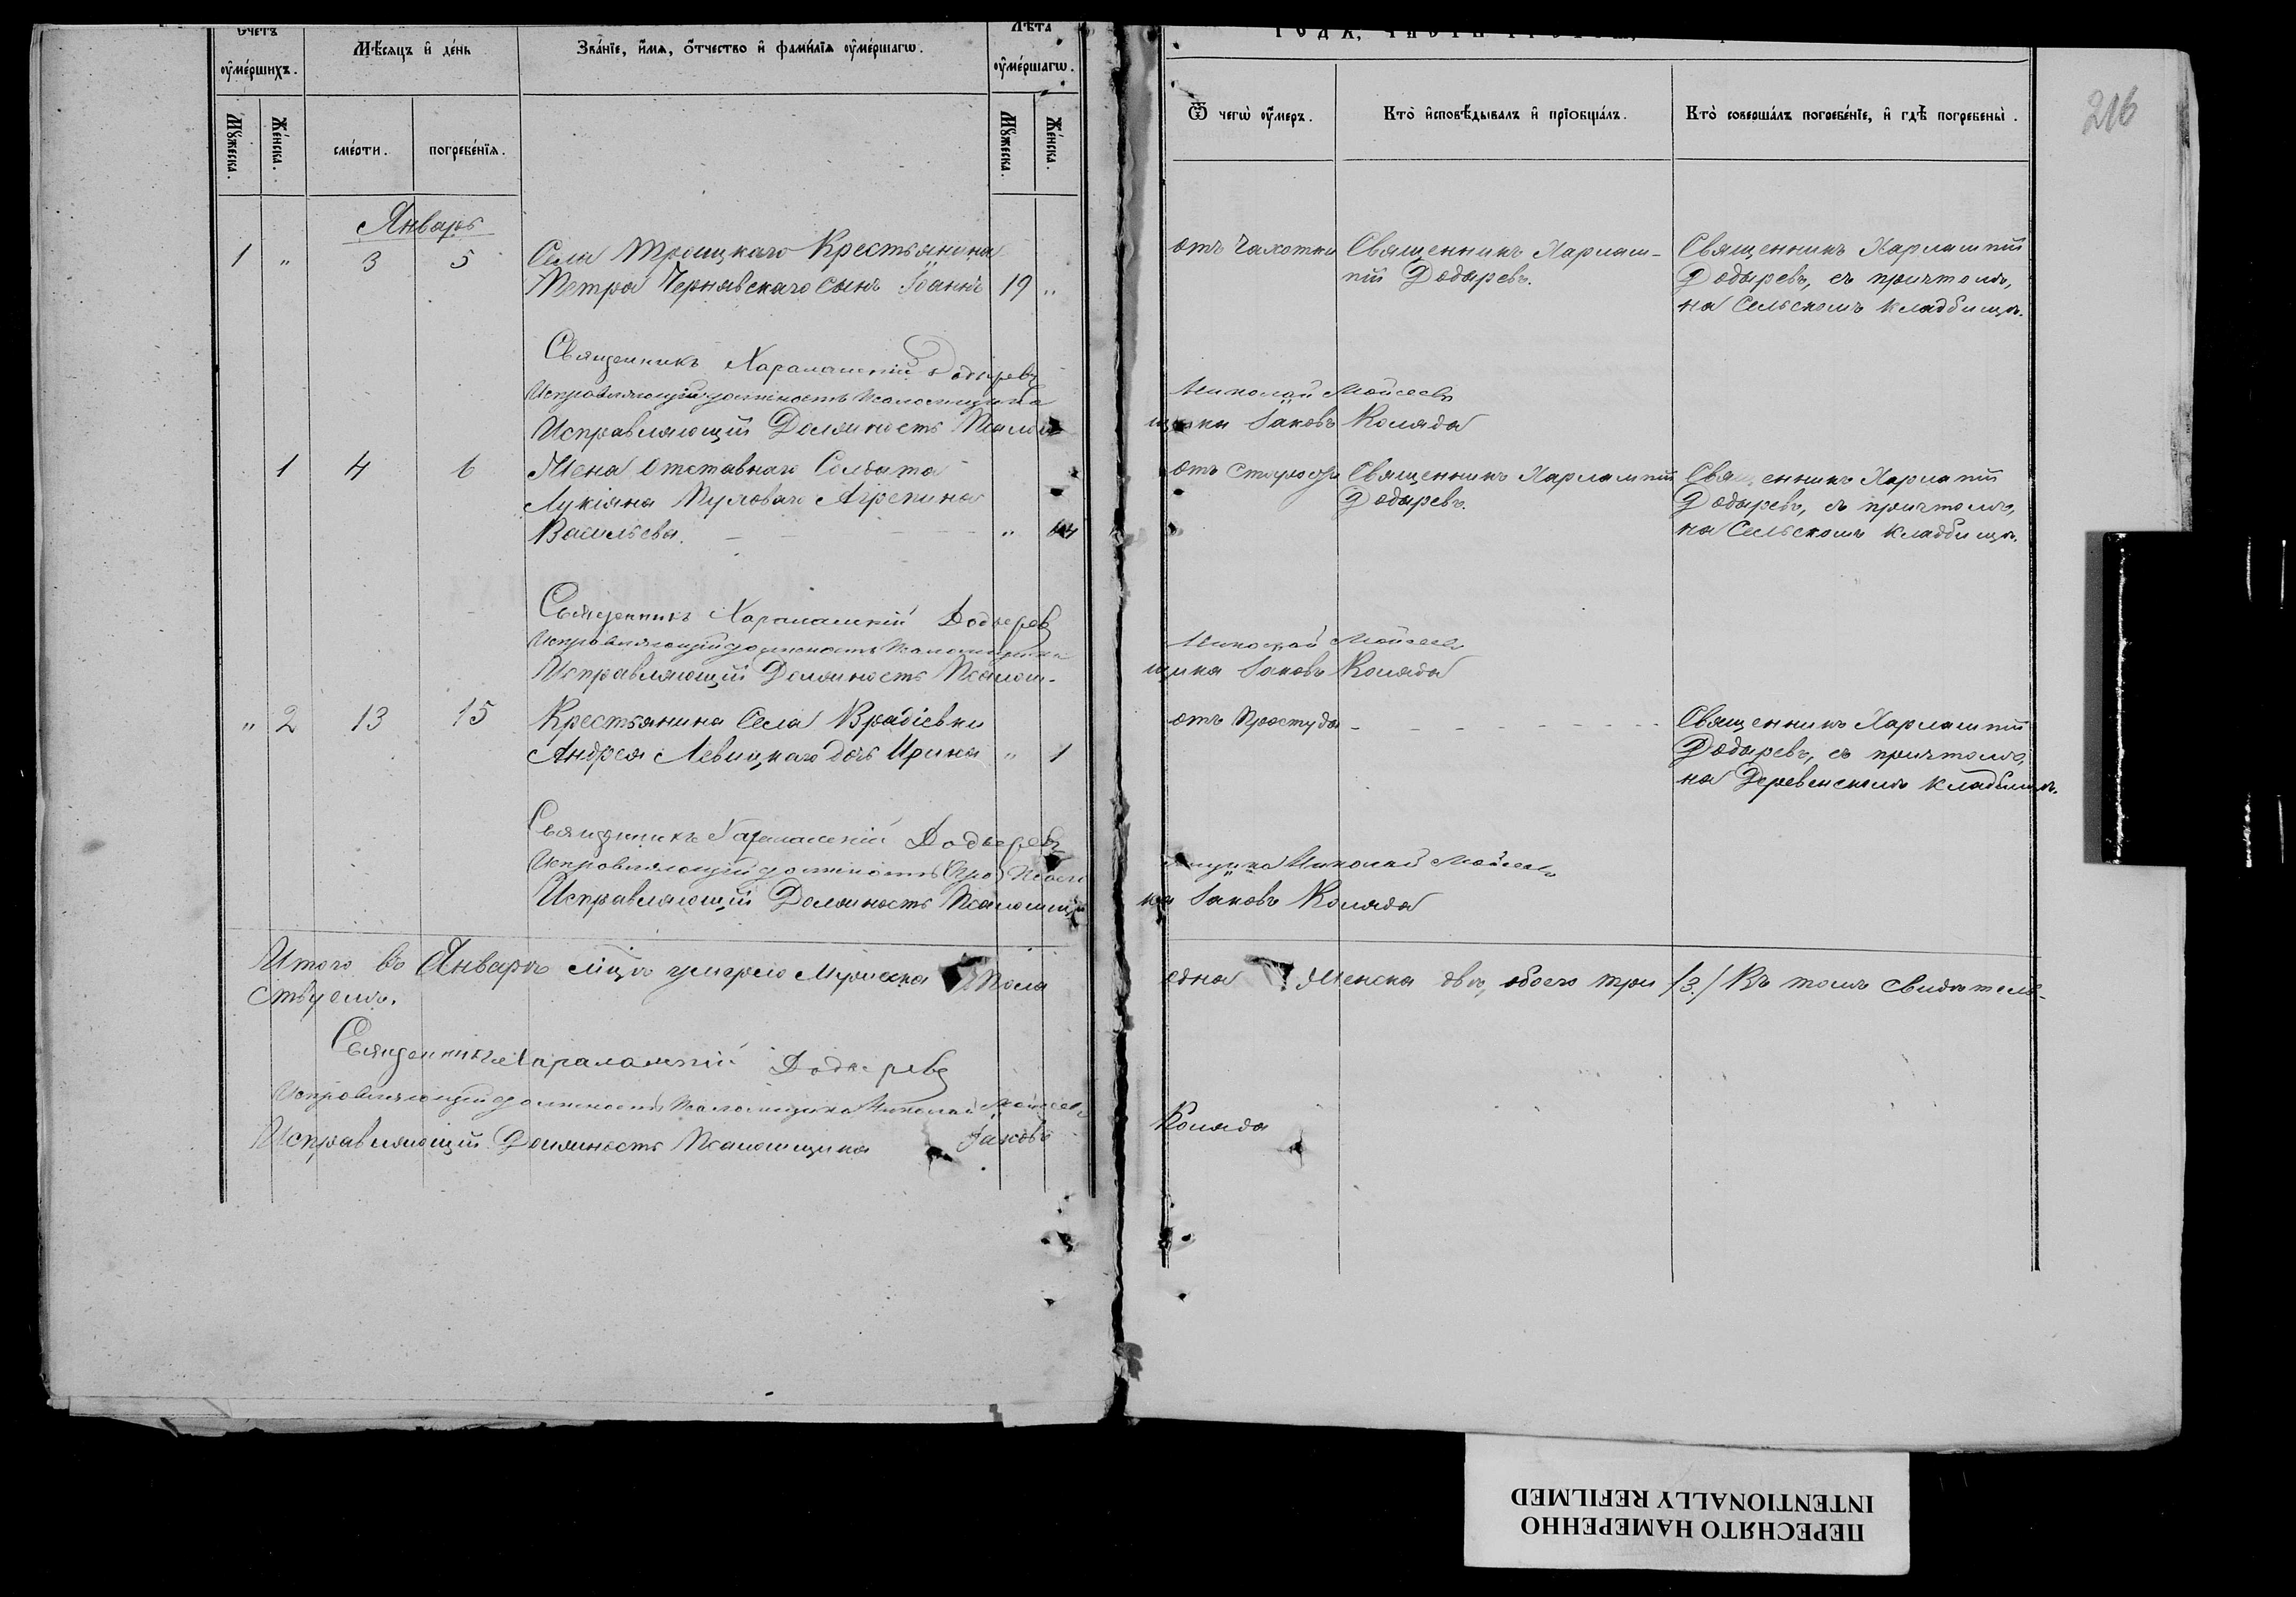 Счетъ оумершихъ.
Мѣсяцъ и день
Званіе, имя, отчество и фамилія оумершагω.
Лѣта оумершагω.
Мужеска.
Женска.
смерти.
погребенія.
Мужеска.
Женска.
Ѿ чегω оумеръ.
Кто исповѣдывалъ и пріобщалъ.
Кто совершалъ погребеніе, и гдѣ погребены.
216
Январь
1 " 3 5 Села Троицкаго Крестьянина
Петра Чернявскаго сынъ Іоаннъ 19 "
отъ Чахотки
Священникъ Харлам-
пій Додыревъ.
Священникъ Харлампій
Додыревъ, съ причтомъ,
на Сельскомъ кладбищѣ.
Священникъ Харалампій Додыревъ
Исправляющій должность Псаломщика Николай Мойсеевъ
Исправляющій Должность Псалом
щика Іаковъ Коляда
1 4 6 Жена Отставнаго Солдата
Лукіяна Агрепина
Васильева. "
отъ Старости
Священникъ Харлампій
Додыревъ.
Священникъ Харлапій
Додыревъ, съ причтомъ,
на Сельскомъ кладбищѣ.
Священникъ Харалампій Додыревъ
Исправляющій должность Псаломщика Николай Мойсеевъ
Исправляющій Должность Псалом-
щика Іаковъ Коляда
" 2 13 15 Крестьянина Села Врадіевки
Андрея Левицкаго дочь Ирина " 1
отъ Простуды
Священникъ Харлампій
Додыревъ, съ причтомъ,
на Деревенскомъ кладбищѣ.
Священникъ Харалампій Додыревъ
Исправляющій должность Псаломщика Николай Мойсеевъ
Исправляющій Должность Псаломщи
ка Іаковъ Коляда
Итого въ Январѣ мцѣ умерло Мужеска Пола
одна Женска двѣ, обоего три /3/ Въ томъ свидѣтель-
ствуемъ.
Священникъ Харалампій Додыревъ
Исправляющій должность Псаломщика Николай Мойсеевъ
Исправляющій Должность Псаломщика Іаковъ
Коляда
ПЕРЕСНЯТО НАМЕРЕННО
INTENTIONALLY REFILMED